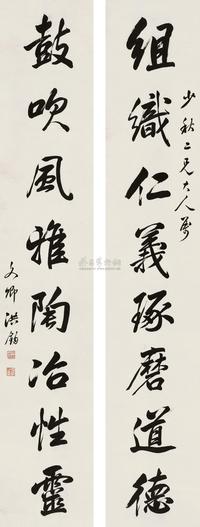 組織仁義琢磨道德
少秋二兄大人屬
鼓吹風雅陶冶性靈
文卿洪鈞